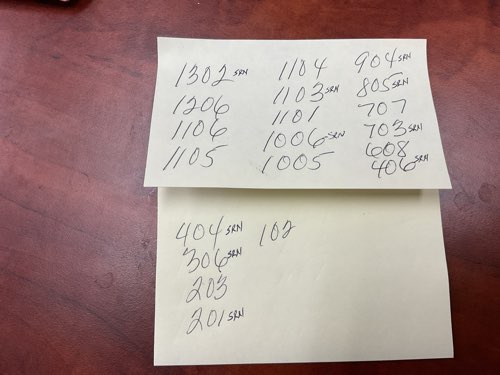 1302 SRN
1206
1106
1105
1104
1103 SRN
1101
1006 SRN
1005
904 SRN
805 SRN
707
703 SRN
608
406 SRN
404 SRN
306 SRN
203
201 SRN
102